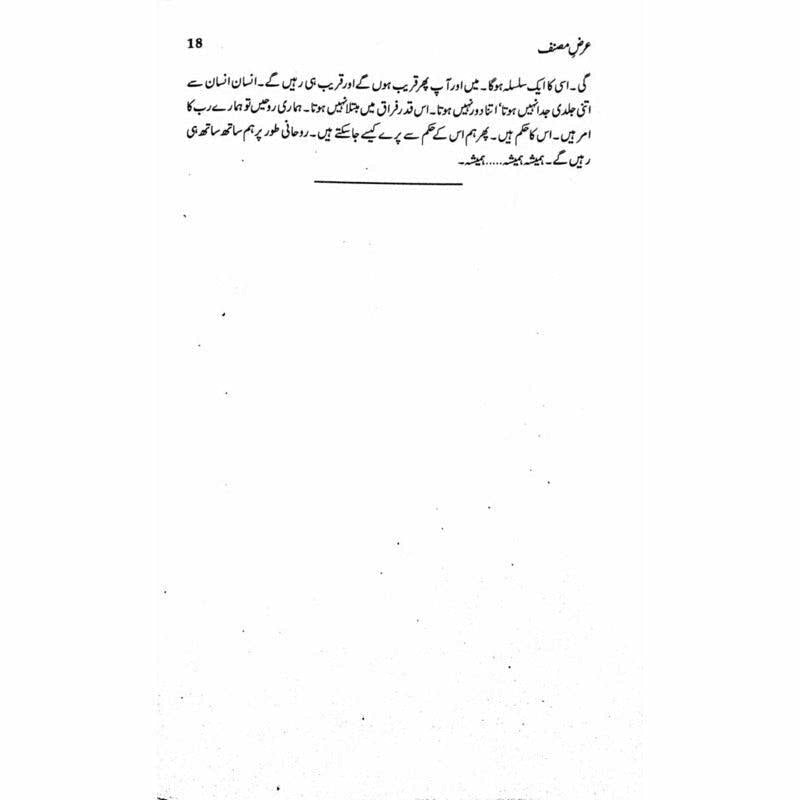 عرضِ مصنف 18
گی۔ اسی کا ایک سلسلہ ہوگا۔ میں اور آپ پھر قریب ہوں گے اور قریب ہی رہیں گے۔ انسان انسان سے
اتنی جلدی جدا نہیں ہوتا‘ اتنا دور نہیں ہوتا۔ اس قدر فراق میں مبتلا نہیں ہوتا۔ ہماری روحیں تو ہمارے رب کا
امر ہیں۔ اس کا حکم ہیں۔ پھر ہم اس کے حکم سے پرے کیسے جاسکتے ہیں۔ روحانی طور پر ہم ساتھ ساتھ ہی
رہیں گے۔ ہمیشہ ہمیشہ.....ہمیشہ۔